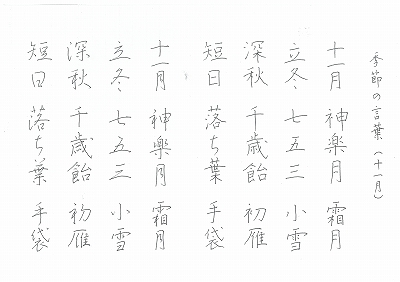 季節の言葉（十一月）
十一月 神楽月 霜月
立冬 七五三 小雪
深秋 千歳飴 初雁
短日 落ち葉 手袋
十一月 神楽月 霜月
立冬 七五三 小雪
深秋 千歳飴 初雁
短日 落ち葉 手袋